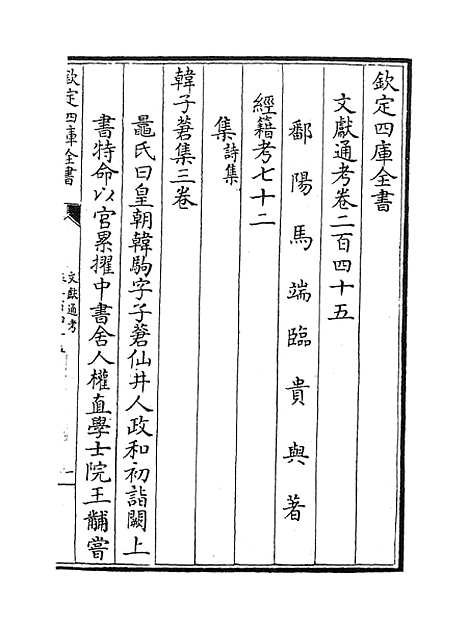 欽定四庫全書
文獻通考卷二百四十五
鄱陽馬端臨貴與著
經籍考七十二
集詩集
韓子蒼集三卷
鼂氏曰皇朝韓駒字子蒼仙井人政和初詣闕上
書特命以官累擢中書舍人權直學士院王黼嘗
欽定四庫全書
文獻通考